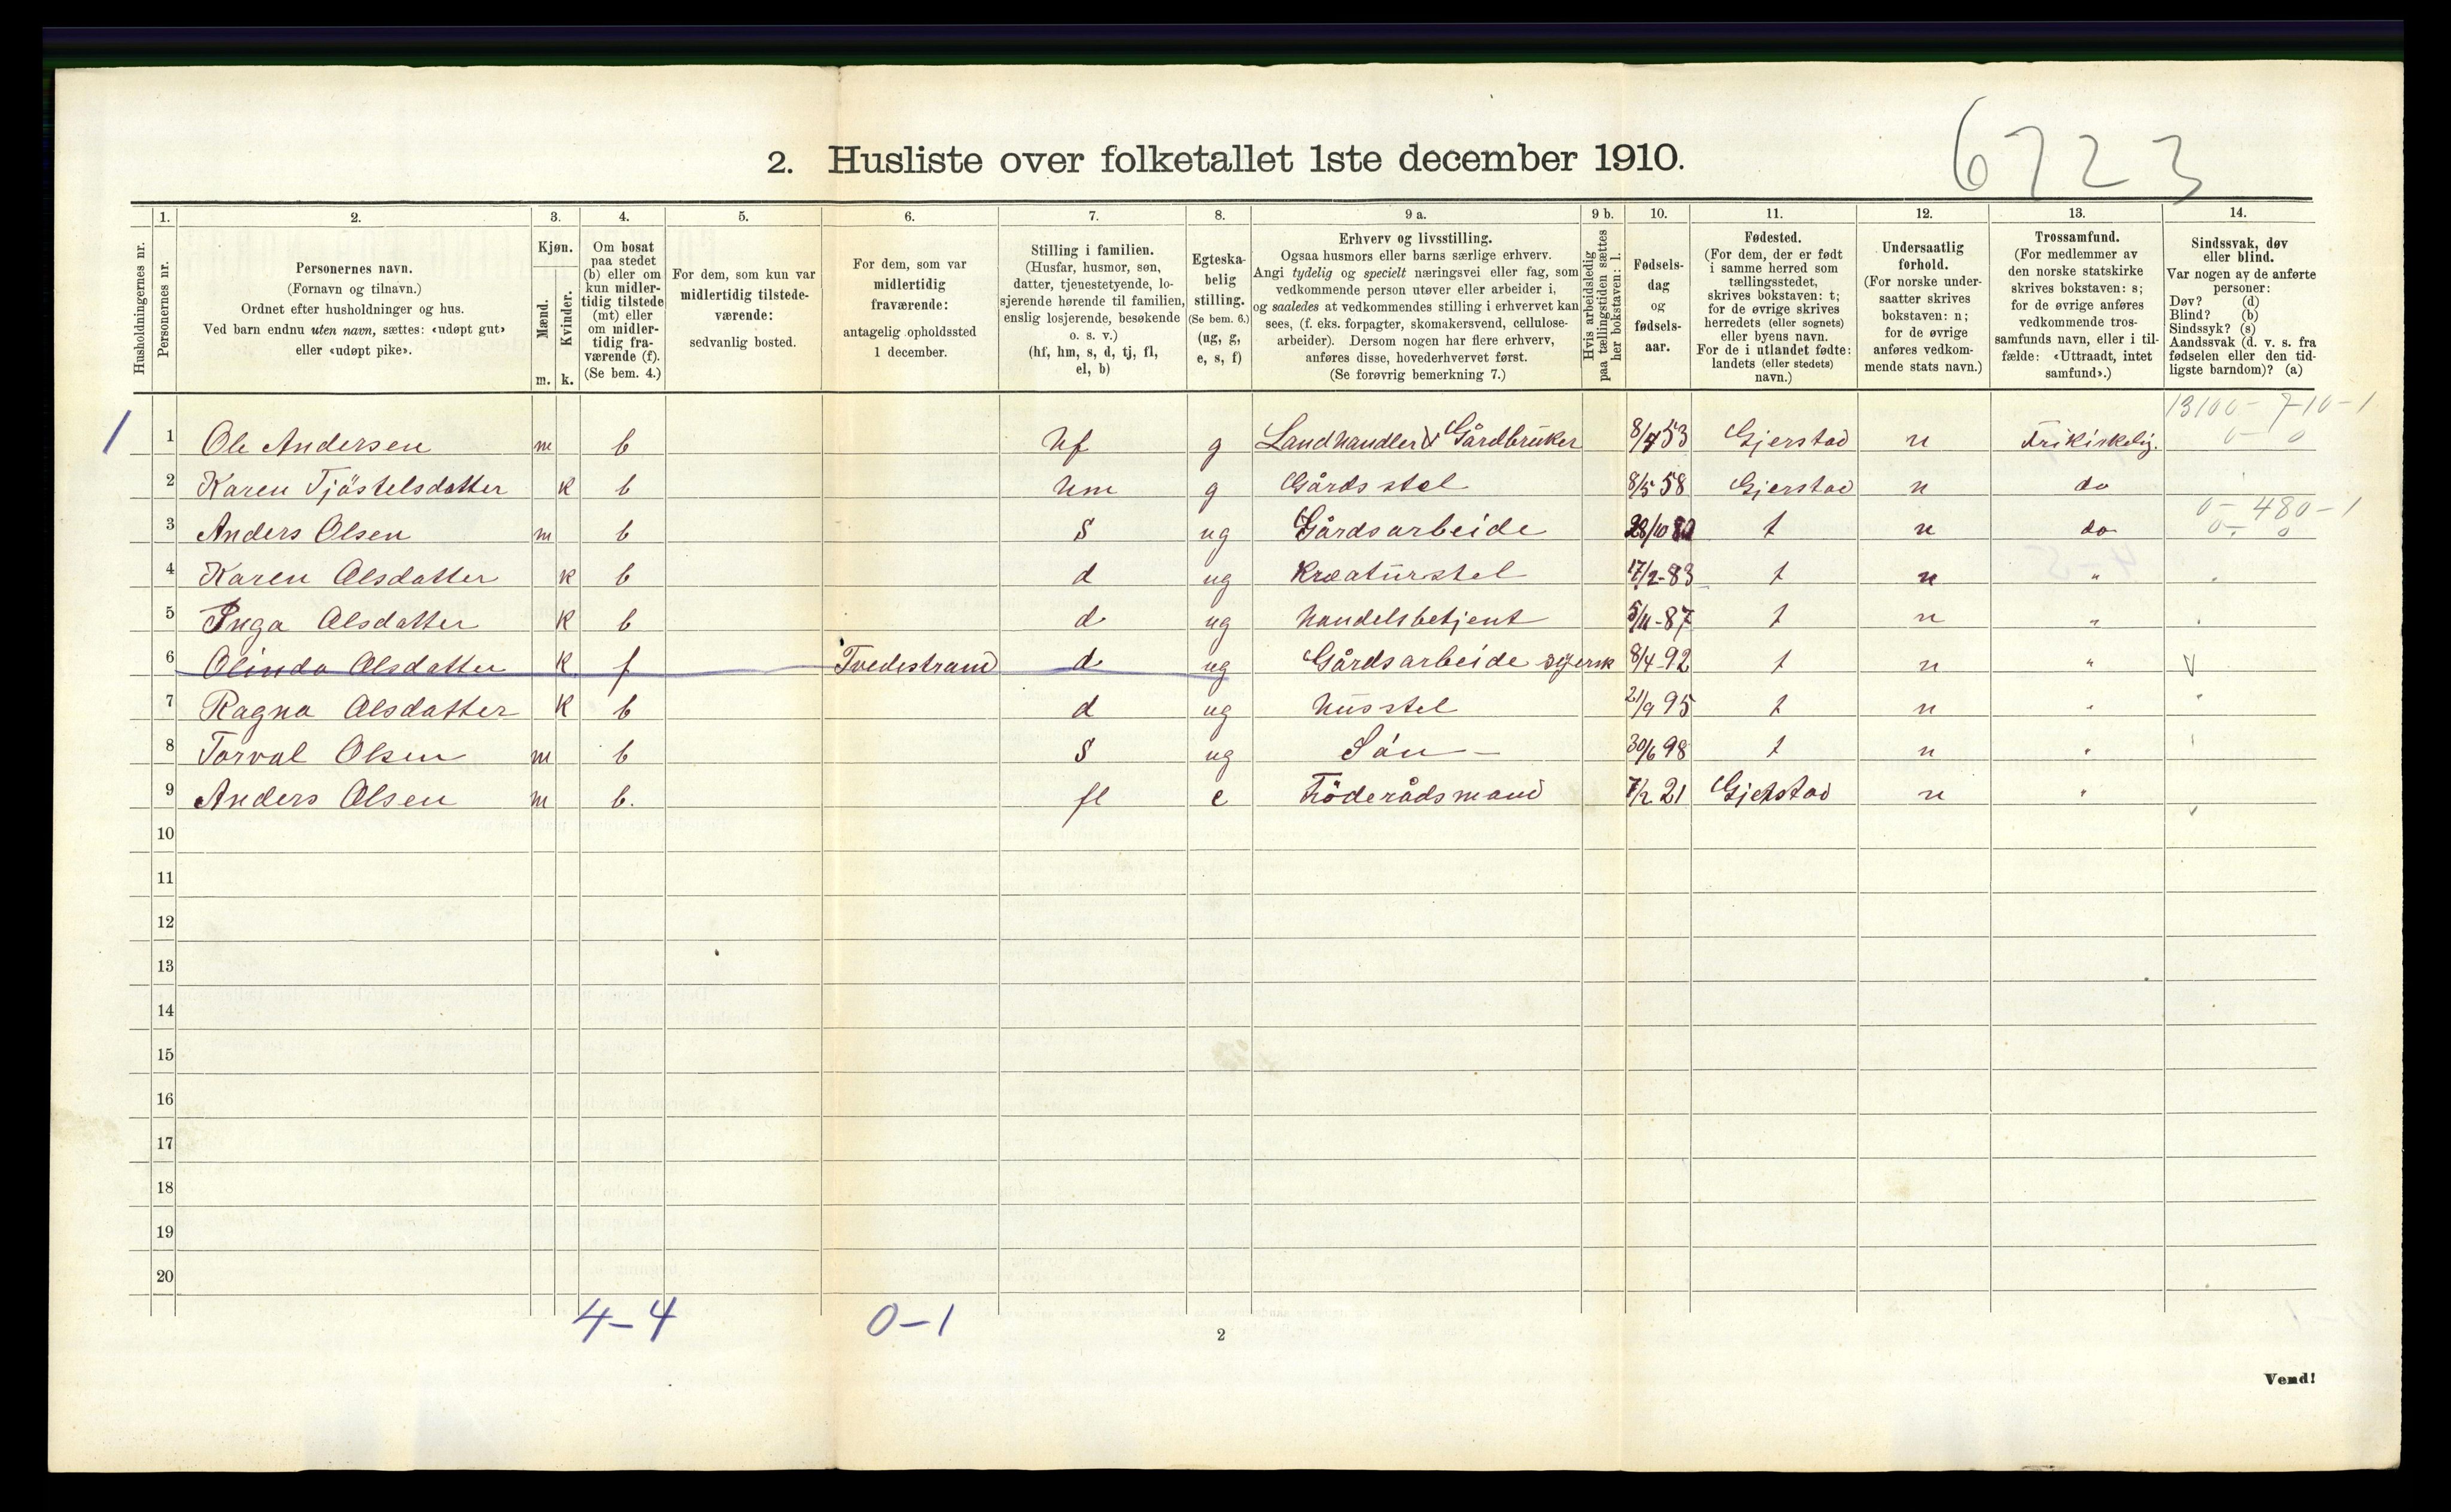 6723
2. Husliste over folketallet 1ste december 1910.
1. 2. 3. 4. 5. 6. 7. 8. 9 a. 9 b. 10. 11. 12. 13. 14.
Husholdningernes nr.
Personernes nr.
Personernes navn.
(Fornavn og tilnavn.)
Ordnet efter husholdninger og hus.
Ved barn endnu uten navn, sættes: «udøpt gut»
eller «udøpt pike».
Kjøn.
Mænd.
Kvinder.
m. k.
Om bosat
paa stedet
(b) eller om
kun midler-
tidig tilstede
(mt) eller
om midler-
tidig fra-
værende (f).
(Se bem. 4.)
For dem, som kun var
midlertidig tilstede-
værende:
sedvanlig bosted.
For dem, som var
midlertidig
fraværende:
antagelig opholdssted
1 december.
Stilling i familien.
(Husfar, husmor, søn,
datter, tjenestetyende, lo-
sjerende hørende til familien,
enslig losjerende, besøkende
o. s. v.)
(hf, hm, s, d, tj, fl,
el, b)
Egteska-
belig
stilling.
(Se bem. 6.)
(ug, g,
e, s, f)
Erhverv og livsstilling.
Ogsaa husmors eller barns særlige erhverv.
Angi tydelig og specielt næringsvei eller fag, som
vedkommende person utøver eller arbeider i,
og saaledes at vedkommendes stilling i erhvervet kan
sees, (f. eks. forpagter, skomakersvend, cellulose-
arbeider). Dersom nogen har flere erhverv,
anføres disse, hovederhvervet først.
(Se forøvrig bemerkning 7.)
Hvis arbeidsledig
paa tællingstiden sættes
her bokstaven: l.
Fødsels-
dag
og
fødsels-
aar.
Fødested.
(For dem, der er født
i samme herred som
tællingsstedet,
skrives bokstaven: t;
for de øvrige skrives
herredets (eller sognets)
eller byens navn.
For de i utlandet fødte:
landets (eller stedets)
navn.)
Undersaatlig
forhold.
(For norske under-
saatter skrives
bokstaven: n;
for de øvrige
anføres vedkom-
mende stats navn.)
Trossamfund.
(For medlemmer av
den norske statskirke
skrives bokstaven: s;
for de øvrige anføres
vedkommende tros-
samfunds navn, eller i til-
fælde: «Uttraadt, intet
samfund».)
Sindssvak, døv
eller blind.
Var nogen av de anførte
personer:
Døv? (d)
Blind? (b)
Sindssyk? (s)
Aandssvak (d. v. s. fra
fødselen eller den tid-
ligste barndom)? (a)
13100 - 710 - 1
1 1 Ole Andersen m b hf g Landhandler & Gårdbruker 8/7 53 Gjerstad n Frikirkelig. 0 - 0
2 Karen Tjöstelsdatter k b hm g Gårdsstel 8/5 58 Gjerstad n do
0 - 480 - 1
3 Anders Olsen m b s ug Gårdsarbeide 28/10 80 t n do 0 - 0
4 Karen Olsdatter k b d ug Kreaturstel 17/2-83 t n "
5 Inga Olsdatter k b d ug Handelsbetjent 5/11-87 t n "
6 Olinda Olsdatter k f Tvedestrand d ug Gårdsarbeide 8/4-92 t n "
7 Ragna Olsdatter k b d ug Husstel 21/9 95 t n "
8 Torval Olsen m b s ug Sön - 30/6 98 t n "
9 Anders Olsen m b. fl e Föderådsmand 7/2 21 Gjerstad n "
10
11
12
13
14
15
16
17
18
19
20
4-4 0-1
2
Vend!